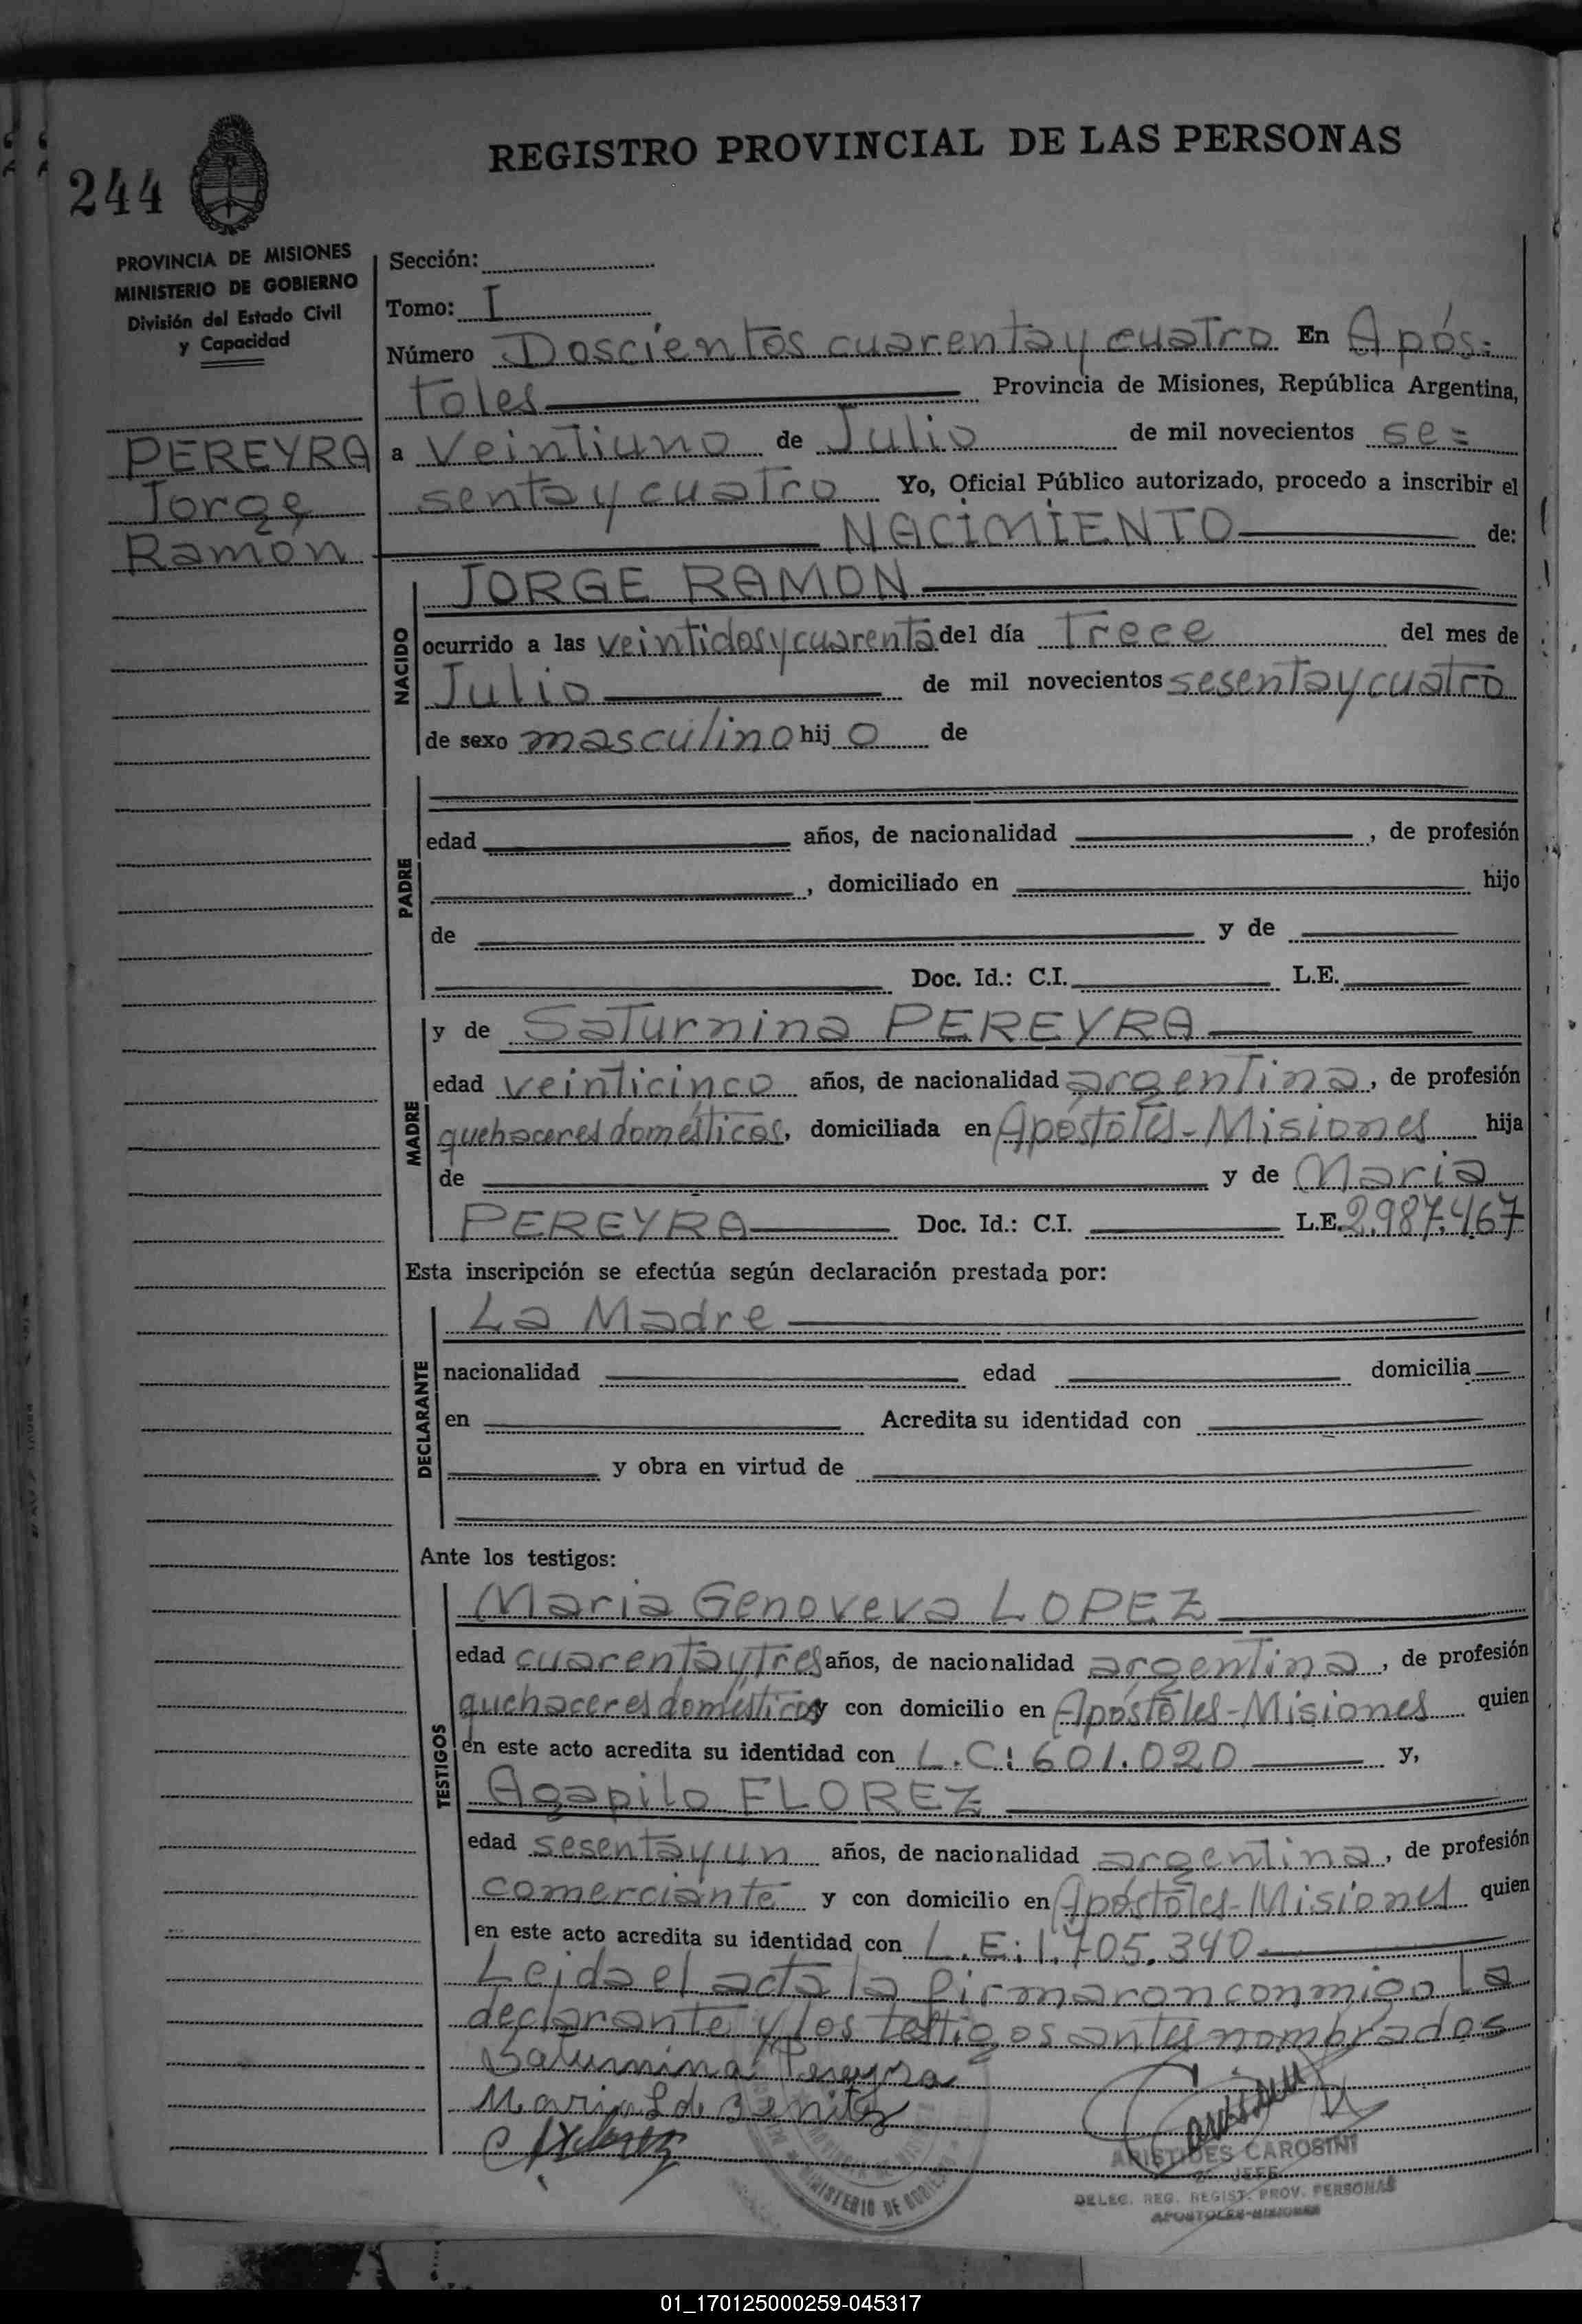 REGISTRO PROVINCIAL DE LAS PERSONAS
244
PROVINCIA DE MISIONES
MINISTERIO DE GOBIERNO
División del Estado Civil
y Capacidad
PEREYRA
Jorge
Ramón
Sección:
Tomo: I
Número Doscientos cuarenta y cuatro En Após=
toles Provincia de Misiones, República Argentina,
a Veintiuno de Julio de mil novecientos se=
senta y cuatro Yo, Oficial Público autorizado, procedo a inscribir el
NACIMIENTO de:
NACIDO
JORGE RAMON
ocurrido a las veintidos y cuarenta del día Trece del mes de
Julio de mil novecientos sesenta y cuatro
de sexo masculino hij o de
PADRE
edad años, de nacionalidad , de profesión
, domiciliado en hijo
de y de
Doc. Id.: C.I. L.E.
MADRE
y de Saturnina PEREYRA
edad veinticinco años, de nacionalidad argentina, de profesión
quehaceres domésticos, domiciliada en Apóstoles - Misiones hija
de y de Maria
PEREYRA Doc. Id.: C.I. L.E. 2.987.467
Esta inscripción se efectúa según declaración prestada por:
DECLARANTE
La Madre
nacionalidad edad domicilia
en Acredita su identidad con
y obra en virtud de
Ante los testigos:
TESTIGOS
Maria Genoveva LOPEZ
edad cuarenta y tres años, de nacionalidad argentina, de profesión
quehaceres domésticos y con domicilio en Apóstoles - Misiones quien
en este acto acredita su identidad con L.C: 601.020 y,
Agapito FLOREZ
edad sesenta y un años, de nacionalidad argentina, de profesión
comerciante y con domicilio en Apóstoles - Misiones quien
en este acto acredita su identidad con L.E: 1.705.340
Leida el acta la firmaron conmigo la
declarante y los testigos antes nombrados
Saturnina Pereyra
Maria L de Benitez
ARISTIDES CAROSINI
JEFE
DELEG. REG. REGIST. PROV. PERSONAS
APOSTOLES-MISIONES
MINISTERIO DE GOBIERNO
01_170125000259-045317